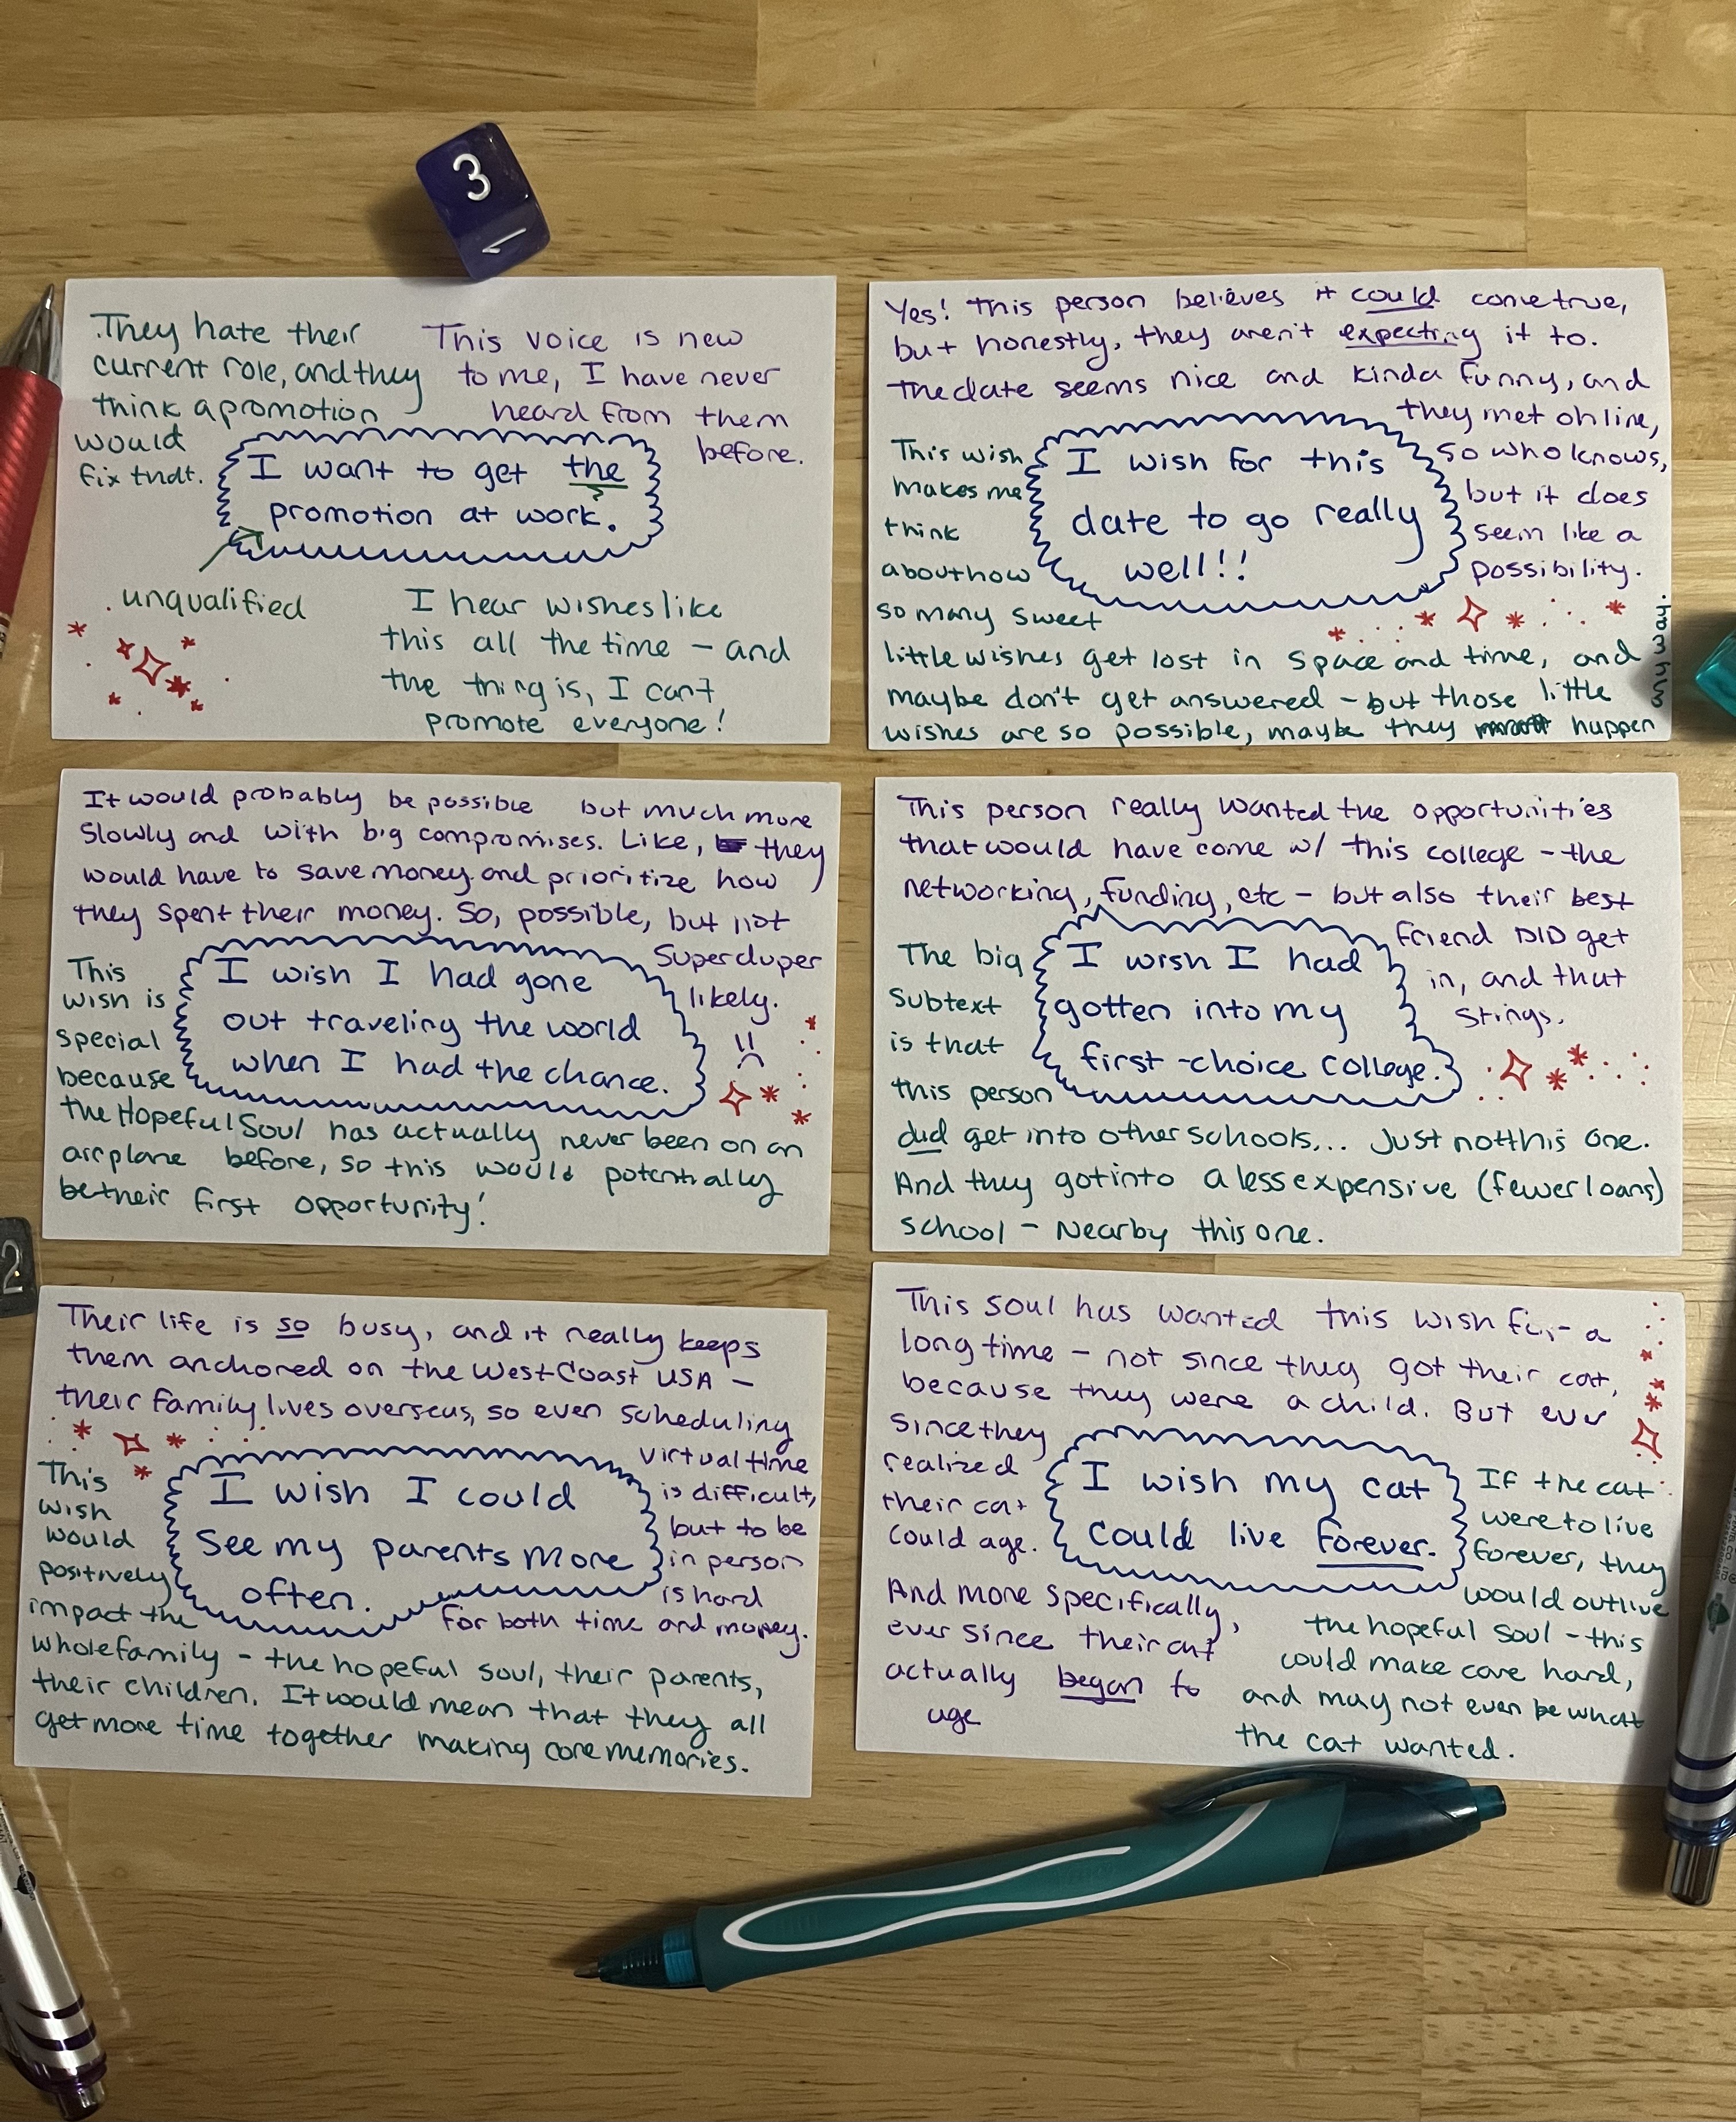 3
1
They hate their
current role, and they
think a promotion
would
fix that.
This voice is new
to me, I have never
heard from them
before.
I want to get the
promotion at work.
unqualified
I hear wishes like
this all the time - and
the thing is, I can't
promote everyone!
Yes! This person believes it could come true,
but honestly, they aren't expecting it to.
The date seems nice and kinda funny, and
they met online,
so who knows,
but it does
seem like a
possibility.
I wish for this
date to go really
well!!
This wish
makes me
think
about how
so many sweet
little wishes get lost in space and time, and
maybe don't get answered - but those little
wishes are so possible, maybe they happen
anyway.
It would probably be possible but much more
slowly and with big compromises. Like, they
would have to save money and prioritize how
they spent their money. So, possible, but not
super duper
likely.
I wish I had gone
out traveling the world
when I had the chance.
This
wish is
special
because
the Hopeful Soul has actually never been on an
airplane before, so this would potentially
be their first opportunity!
This person really wanted the opportunities
that would have come w/ this college - the
networking, funding, etc - but also their best
friend DID get
in, and that
stings.
I wish I had
gotten into my
first-choice college.
The big
subtext
is that
this person
did get into other schools... Just not this one.
And they got into a less expensive (fewer loans)
school - Nearby this one.
2
Their life is so busy, and it really keeps
them anchored on the West Coast USA -
their family lives overseas, so even scheduling
virtual time
is difficult,
but to be
in person
is hard
for both time and money.
I wish I could
see my parents more
often.
This
wish
would
positively
impact the
whole family - the hopeful soul, their parents,
their children. It would mean that they all
get more time together making core memories.
This soul has wanted this wish for a
long time - not since they got their cat,
because they were a child. But ever
since they
realized
their cat
could age.
And more specifically,
ever since their cat
actually began to
age
I wish my cat
could live forever.
If the cat
were to live
forever, they
would outlive
the hopeful soul - this
could make care hard,
and may not even be what
the cat wanted.